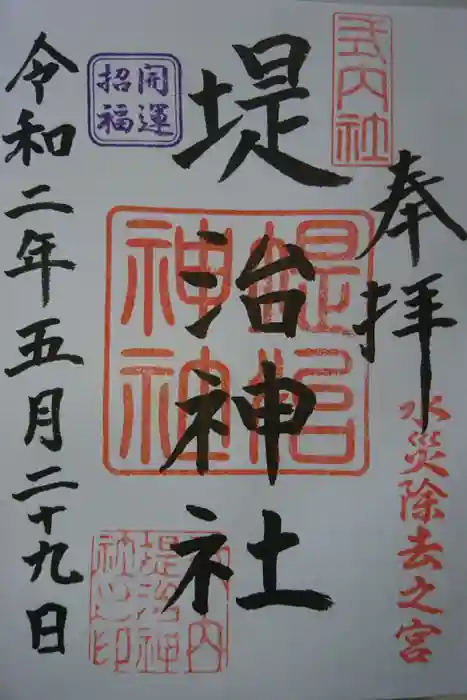 奉拝
水災除去之宮
式内社
堤治神社
堤治神社
式内
堤治神
社之印
開運
招福
令和二年五月二十九日